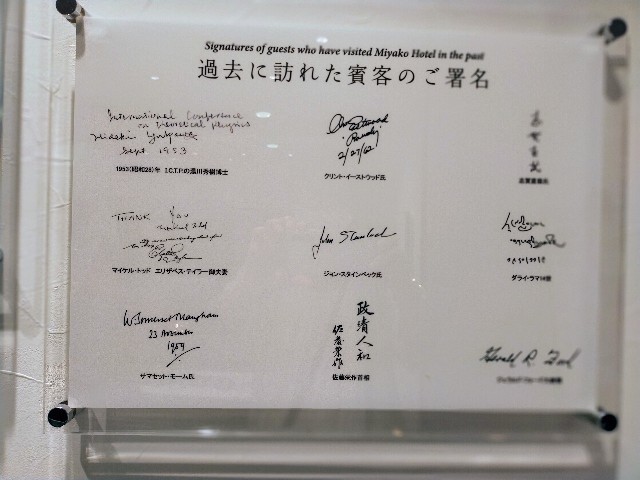 Signatures of guests who have visited Miyako Hotel in the past
過去に訪れた賓客のご署名
International Conference
on Theoretical Physics
Hideki Yukawa
Sept 1953
1953(昭和28)年 I.C.T.P.の湯川秀樹博士
2/27/62
クリント・イーストウッド氏
志賀直哉
志賀直哉氏
THANK YOU
マイケル・トッド エリザベス・テイラー御夫妻
John Steinbeck
ジョン・スタインベック氏
ダライ・ラマ14世
W. Somerset Maugham
23 November
1959
サマセット・モーム氏
政清人和
佐藤榮作
佐藤栄作首相
Gerald R. Ford